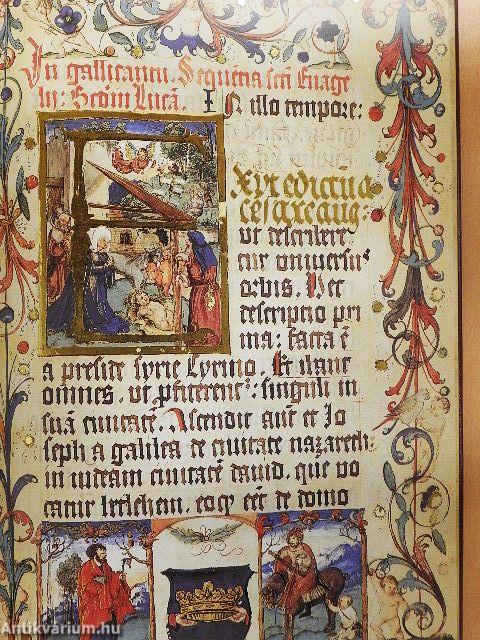 In gallicantu Sequētia sctī Euāge
lii: Scdm Lucā. IN illo tempore:
Exyt edictū a
cesare aug:
ut describere
tur uniuersu'
orbis. Hec
descriptio pri
ma: facta ē
a preside syrie Cyrino. Et ibant
omnes, ut ꝓfiterent': singuli in
suā ciuitatē. Ascendit aūt et Io
seph a galilea de ciuitate nazareth:
in iudeam ciuitatē dauid, que vo
catur bethlehem, eoq eēt de domo
Antikvárium.hu